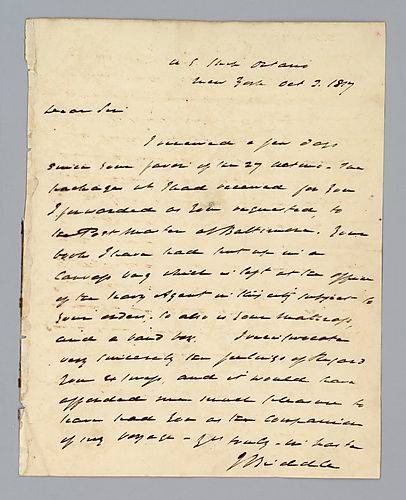 U S Ship Ontario
New York Oct 3. 1817
Dear Sir
I received a few days
since your favor of the 27 . The
packages wh I had received for you
I forwarded as you requested, to
the Post Master of Baltimore. Your
book I have had put up in a
Canvass bag which is left at the office
of the Navy Agent in this city subject to
your orders. So also is your mattrass,
and a band box. I
very sincerely the feelings of regard
you express, and it would have
afforded me much pleasure to
have had you as the companion
of my voyage - Yrs truly - in haste
J Biddle